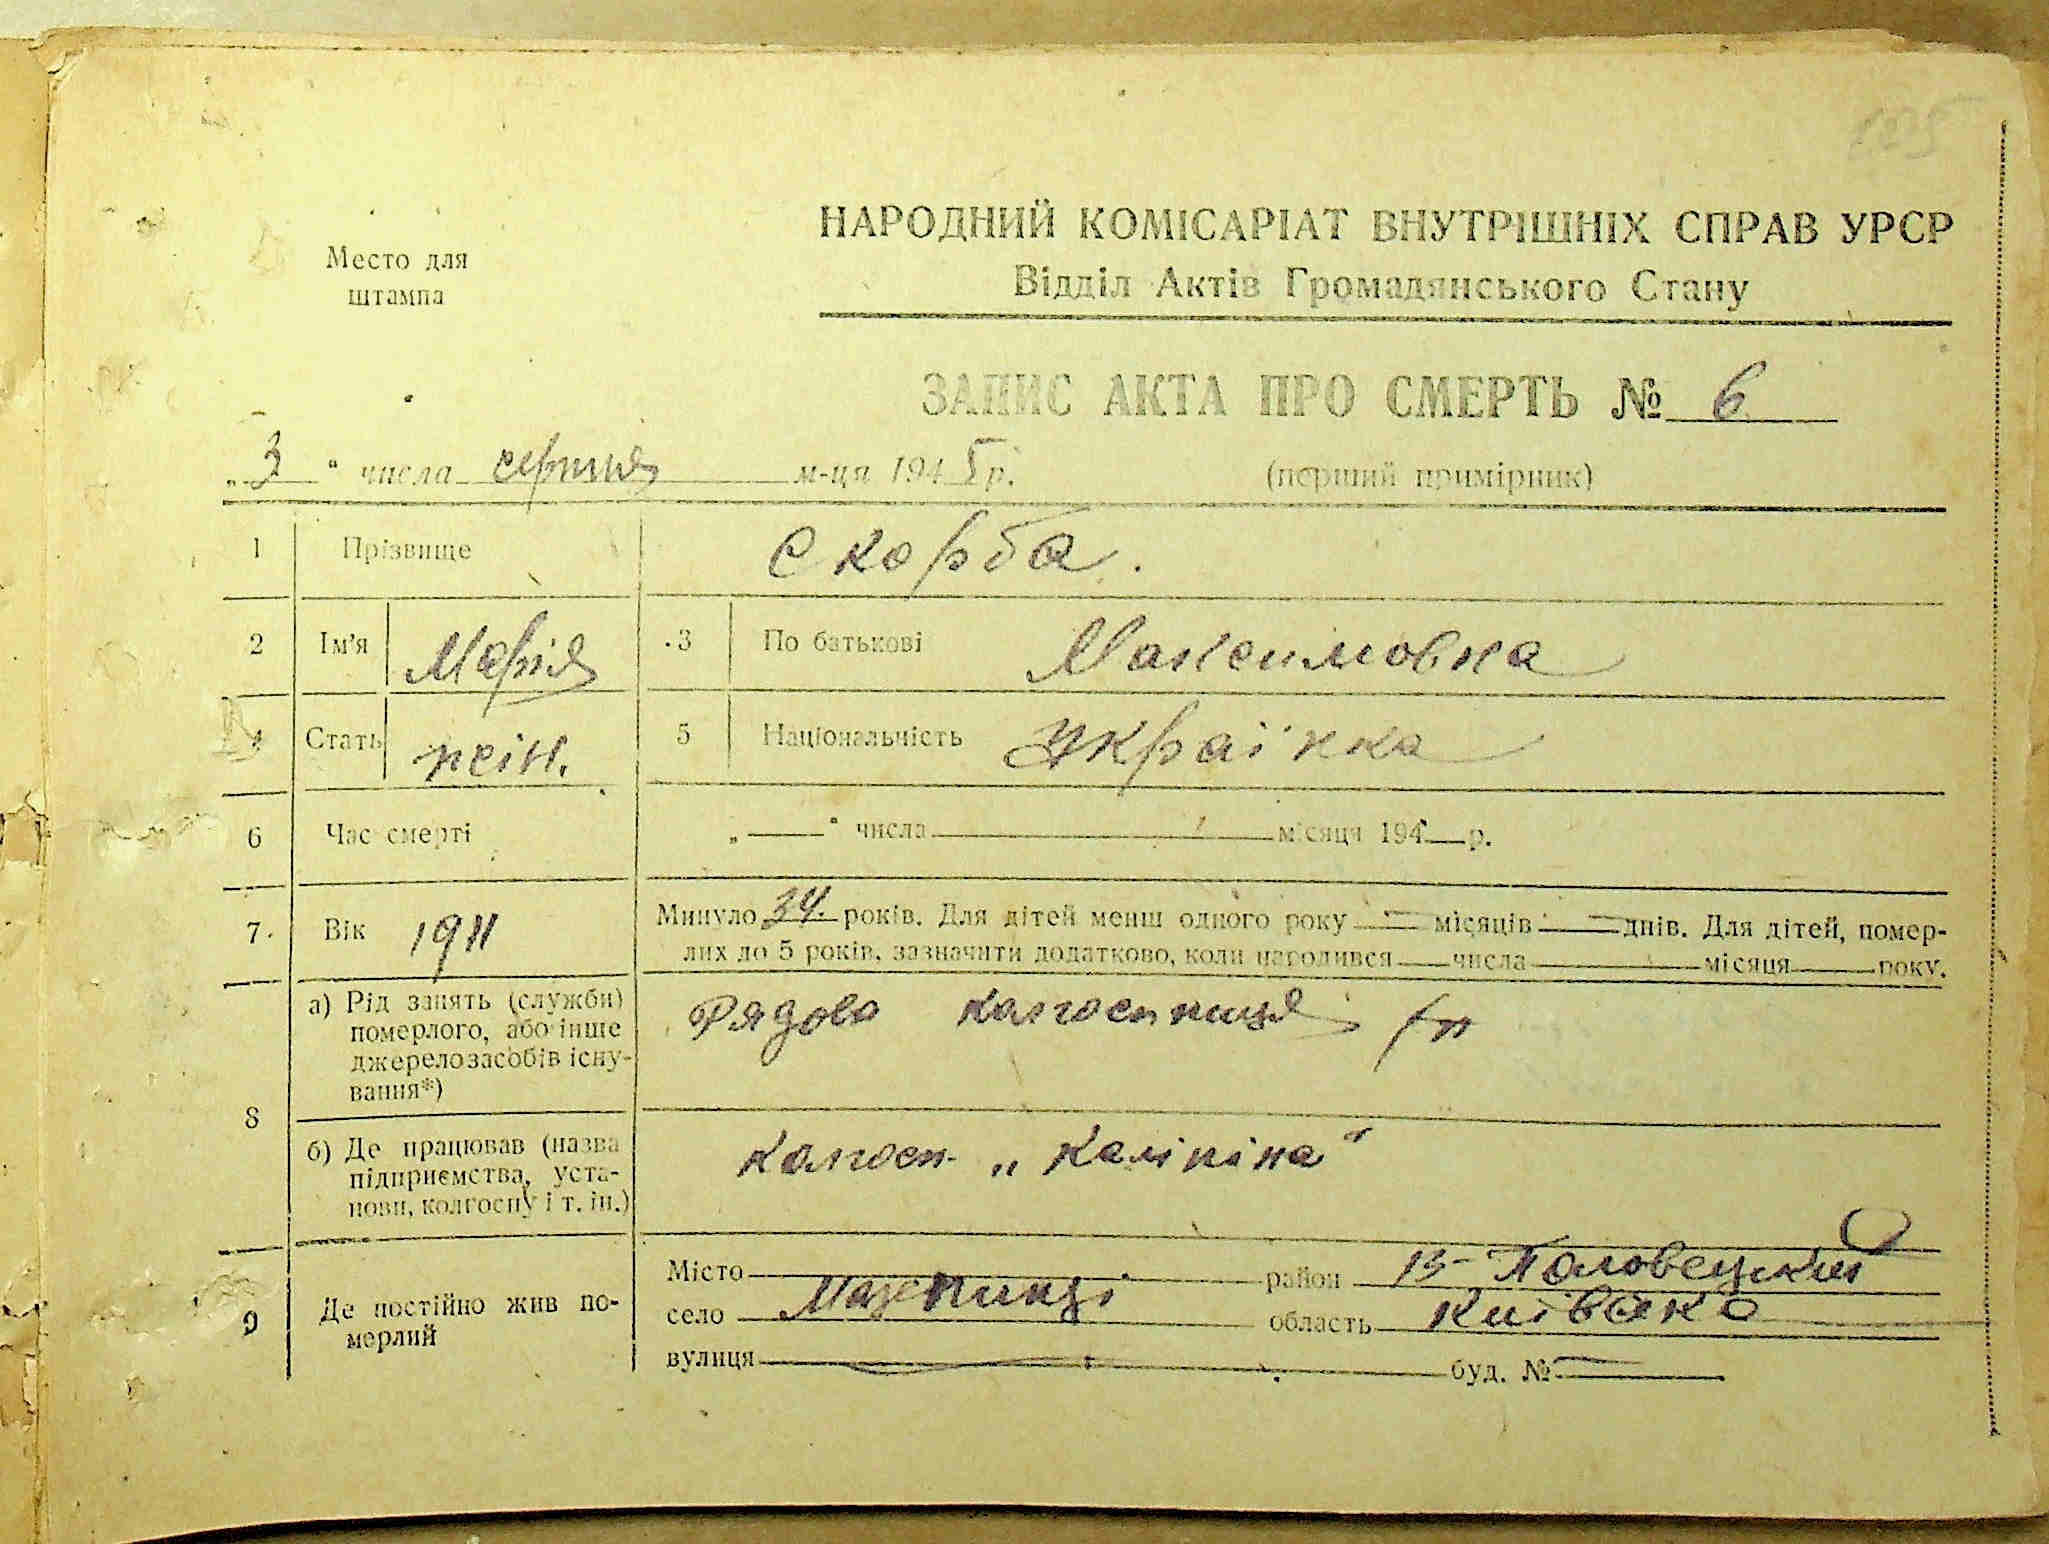 НАРОДНИЙ КОМІСАРІАТ ВНУТРІШНІХ СПРАВ УРСР
Место для
штампа
Відділ Актів Громадянського Стану
ЗАПИС АКТА ПРО СМЕРТЬ № 6
„ 3 " числа серпня м-ця 1945 р.
(перший примірник)
1 Прізвище Скорба.
2 Ім'я Марія 3 По батькові Максимовна
4 Стать жін. 5 Національність Українка
6 Час смерті „ — " числа — місяця 194 — р.
7 Вік 1911 Минуло 34. років. Для дітей менш одного року — місяців — днів. Для дітей, помер-
лих до 5 років, зазначити додатково, коли народився — числа — місяця — року.
8 а) Рід занять (служби)
померлого, або інше
джерело засобів існу-
вання*)
Рядова колгоспниця
б) Де працював (назва
підприємства, уста-
нови, колгоспу і т. ін.)
колгосп „Калініна"
9 Де постійно жив по-
мерлий
Місто — район В-Половецкий
село Мазепинці область Київска
вулиця — буд. № —